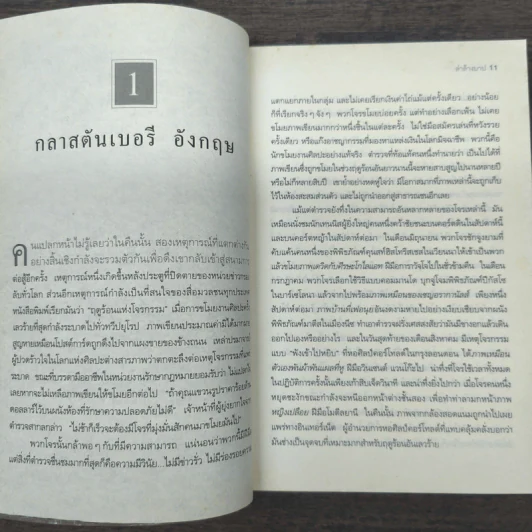 1
กลาสตันเบอรี อังกฤษ
คนแปลกหน้าไม่รู้เลยว่าในคืนนั้น สองเหตุการณ์ที่แตกต่างกัน
อย่างสิ้นเชิงกำลังจะรวมตัวกันเพื่อดึงเขากลับเข้าสู่สนามการ
ต่อสู้อีกครั้ง เหตุการณ์หนึ่งเกิดขึ้นหลังประตูที่ปิดตายของหน่วยข่าว
ลับทั่วโลก ส่วนอีกเหตุการณ์กำลังเป็นที่สนใจของสื่อมวลชนทุก
หนังสือพิมพ์เรียกมันว่า "ฤดูร้อนแห่งโจรกรรม"
เลวร้ายที่สุดกำลังระบาดไปทั่วทวีปยุโรป ภาพเขียนประมาณค่ามิได้
สูญหายเหมือนโปสต์การ์ดถูกดึงไปจากแผงขายของข้างถนน เหล่า
ผู้ปวดร้าวใจในโลกแห่งศิลปะต่างสารภาพว่าตกตะลึงต่อเหตุโจรกรรม
ระบาด ขณะที่บรรดามืออาชีพในหน่วยงานรักษากฎหมายยอมรับว่า
เลยหากจะไม่เหลือภาพเขียนให้ขโมยอีกต่อไป
ดอลลาร์ไว้บนผนังห้องที่รักษาความปลอดภัยไม่ดี" เจ้าหน้าที่
ตำรวจสากลกล่าว "ไม่ช้าก็เร็วจะต้องมีโจรที่มุ่งมั่นสักคนมาขโมยมันไป"
พวกโจรนั้นกล้าพอๆ กับที่มีความสามารถ แน่นอนว่าพวกนี้มี
แต่สิ่งที่ตำรวจชื่นชมมากที่สุดก็คือความมีวินัย...ไม่มีข่าวรั่ว ไม่มีร่องรอย
ล่าล้างบาป 11
แตกแยกภายในกลุ่ม และไม่เคยเรียกเงินค่าไถ่แม้แต่ครั้งเดียว...อย่างน้อย
ก็ที่เรียกจริงๆ จังๆ พวกโจรขโมยบ่อยครั้ง แต่ทำอย่างเลือกเฟ้น ไม่เคย
ขโมยภาพเขียนมากกว่าหนึ่งชิ้นในแต่ละครั้ง ไม่ใช่มือสมัครเล่นที่หวังรวย
ครั้งเดียว หรือแก๊งอาชญากรรมที่มองหาแหล่งเงินในโลกมิจฉาชีพ พวกนี้คือ
นักขโมยงานศิลปะอย่างแท้จริง ตำรวจที่ท้อแท้คนหนึ่งทำนายว่า เป็นไปได้ที่
ภาพเขียนซึ่งถูกขโมยในช่วงฤดูร้อนอันยาวนานนี้จะหายสาบสูญไปนานหลายปี
หรือไม่ก็หลายสิบปี เขาย้ำอย่างหดหู่ใจว่า มีโอกาสมากที่ภาพเหล่านี้จะถูกเก็บ
ไว้ในห้องสะสมส่วนตัว และไม่ถูกนำออกมาสู่สาธารณชนอีกเลย
แม้แต่ตำรวจยังทึ่งในความสามารถอันหลากหลายของโจรเหล่านี้ มัน
เหมือนนั่งชมนักเทนนิสผู้ยิ่งใหญ่คนหนึ่งคว้าชัยชนะบนคอร์ตดินในสัปดาห์นี้
และบนคอร์ตหญ้าในสัปดาห์ต่อมา ในเดือนมิถุนายน พวกโจรชักจูงยามที่
คับแค้นคนหนึ่งของพิพิธภัณฑ์คุนสท์ฮิสโตริสเชสในเวียนนาให้เข้าเป็นพวก
แล้วขโมยภาพเดวิดกับศีรษะโกไลแอท ฝีมือคาราวัจโจไปในชั่วข้ามคืน ในเดือน
กรกฎาคม พวกโจรเลือกใช้วิธีแบบคอมมานโด บุกจู่โจมพิพิธภัณฑ์ปิกัสโซ
ในบาร์เซโลนา แล้วจากไปพร้อมภาพเหมือนของเซญอราคานัลส์ เพียงหนึ่ง
สัปดาห์ต่อมา ภาพบ้านที่เฟอนุยอันงดงามหายไปอย่างเงียบเชียบจากผนัง
พิพิธภัณฑ์มาตีสในเมืองนีซ ทำเอาตำรวจฝรั่งเศสสงสัยว่ามันมีขางอกแล้วเดิน
ออกไปเองหรืออย่างไร และในวันสุดท้ายของเดือนสิงหาคม มีเหตุโจรกรรม
แบบ "พังเข้าไปหยิบ" ที่หอศิลป์คอร์ทโทลด์ในกรุงลอนดอน ได้ภาพเหมือน
ตัวเองพันผ้าพันแผลที่หู ฝีมือวินเซนต์ แวนโก๊ะไป น่าทึ่งที่โจรใช้เวลาทั้งหมด
ในปฏิบัติการครั้งนั้นเพียงเก้าสิบเจ็ดวินาที และน่าทึ่งยิ่งไปกว่า เมื่อโจรคนหนึ่ง
หยุดชะงักขณะกำลังจะหนีออกหน้าต่างชั้นสอง เพื่อทำท่าล้ามกหน้าภาพ
หญิงเปลือย ฝีมือโมดิลยานี ในคืนนั้น ภาพจากกล้องรอดแมนถูกนำไปเผย
แพร่ทางอินเทอร์เน็ต ผู้อำนวยการหอศิลป์คอร์ทโทลด์ที่แทบคลุ้มคลั่งบอกว่า
มันช่างเป็นจุดจบที่เหมาะมากสำหรับฤดูร้อนอันเลวร้าย